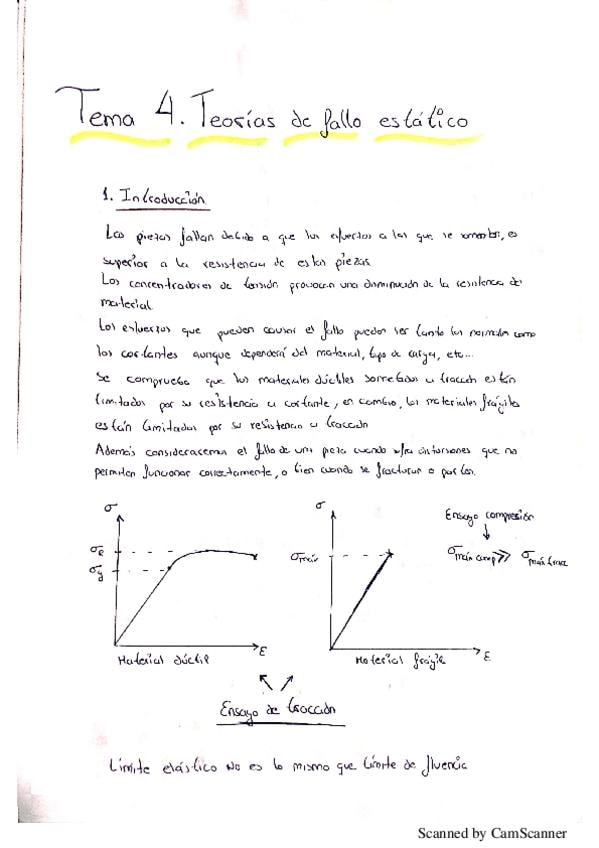 Tema 4. Teorías de fallo estático
1. Introducción
Las piezas fallan debido a que los esfuerzos a los que se someten, es
superior a la resistencia de estas piezas
Los concentradores de tensión provocan una disminución de la resistencia del
material
Los esfuerzos que pueden causar el fallo pueden ser tanto los normales como
los cortantes aunque dependerá del material, tipo de carga, etc...
Se comprueba que los materiales dúctiles sometidos a tracción están
limitados por su resistencia a cortante, en cambio, los materiales frágiles
están limitados por su resistencia a tracción
Además consideraremos el fallo de una pieza cuando sufra distorsiones que no
permiten funcionar correctamente, o bien cuando se fracturan o parten.
σ
σ
Ensayo compresión
σR
σy
σmáx
σmáx comp >> σmáx tracc
ε
ε
Material dúctil
Material frágil
Ensayo de tracción
Límite elástico no es lo mismo que límite de fluencia
Scanned by CamScanner